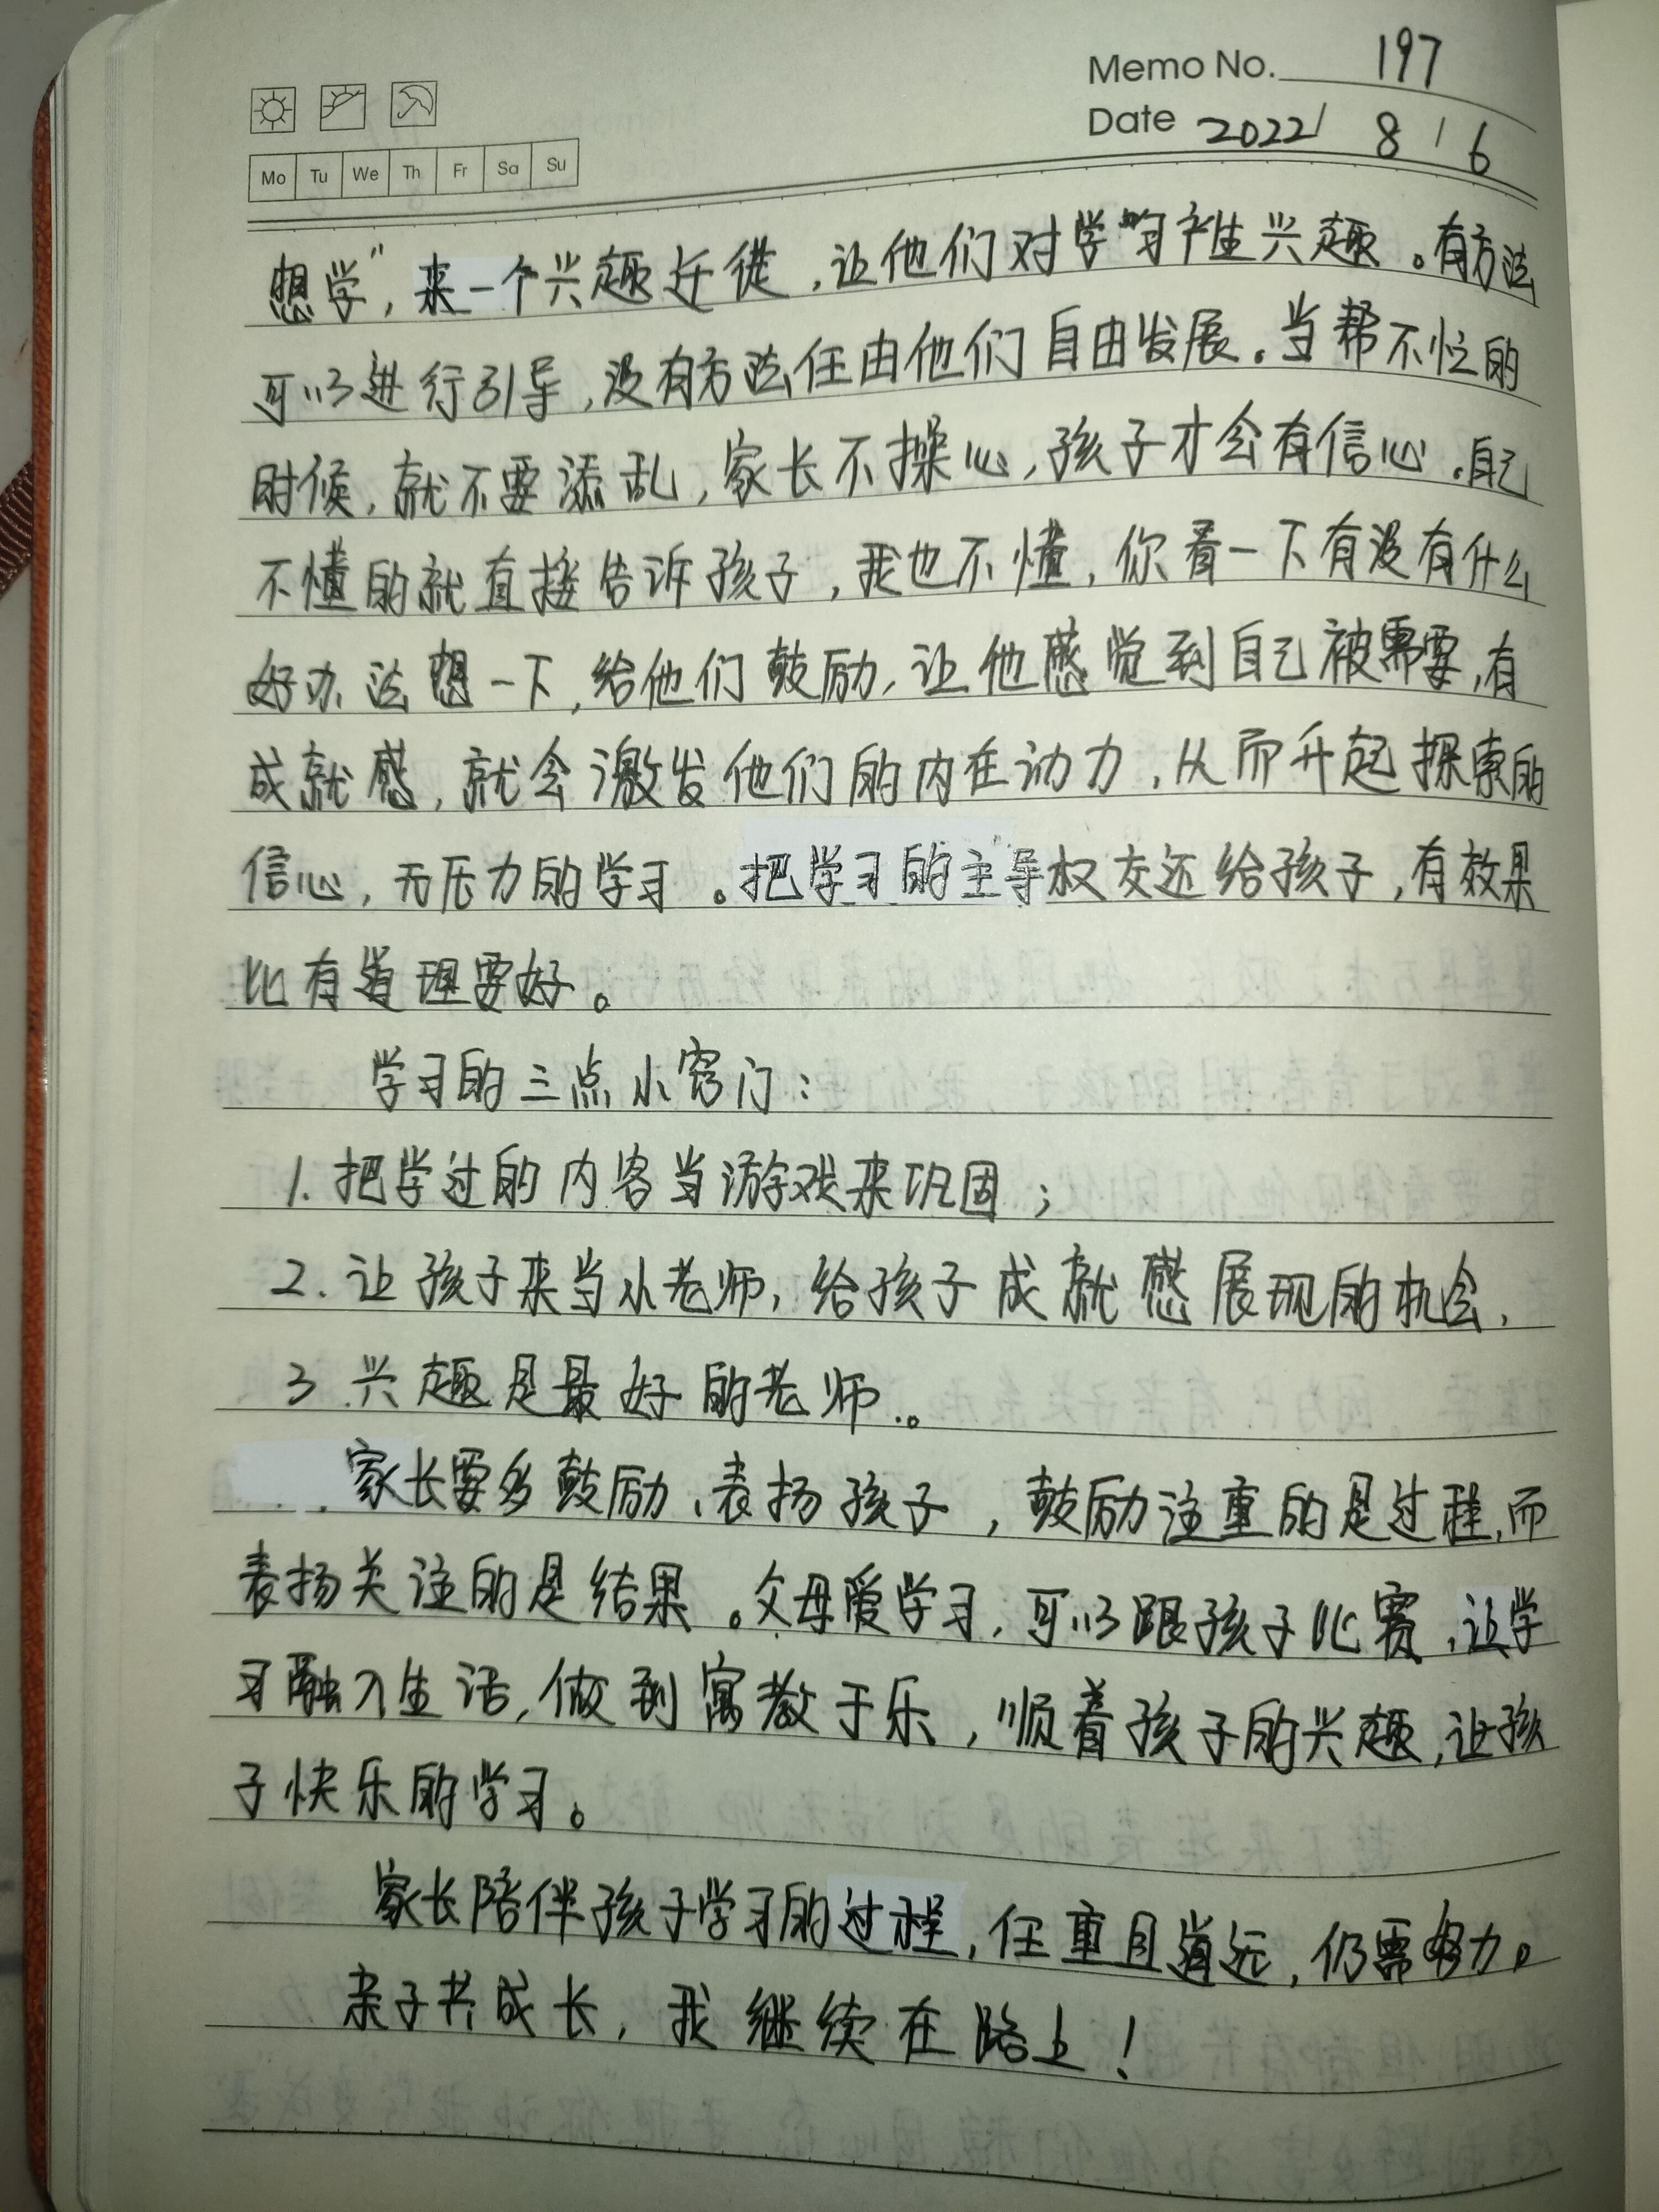 Memo No. 197
Date 2022/ 8 / 6
Mo Tu We Th Fr Sa Su
想学”，来一个兴趣迁徙，让他们对学习产生兴趣。有方法
可以进行引导，没有方法任由他们自由发展。当帮不忙的
时候，就不要添乱，家长不操心，孩子才会有信心。自己
不懂的就直接告诉孩子，我也不懂，你看一下有没有什么
好办法想一下，给他们鼓励，让他感觉到自己被需要，有
成就感，就会激发他们的内在动力，从而升起探索的
信心，无压力的学习。把学习的主导权交还给孩子，有效果
比有道理要好。
学习的三点小窍门：
1.把学过的内容当游戏来巩固；
2.让孩子来当小老师，给孩子成就感展现的机会，
3.兴趣是最好的老师。
家长要多鼓励、表扬孩子，鼓励注重的是过程，而
表扬关注的是结果。父母爱学习，可以跟孩子比赛，让学
习融入生活，做到寓教于乐，顺着孩子的兴趣，让孩
子快乐的学习。
家长陪伴孩子学习的过程，任重且道远，仍需努力。
亲子共成长，我继续在路上！